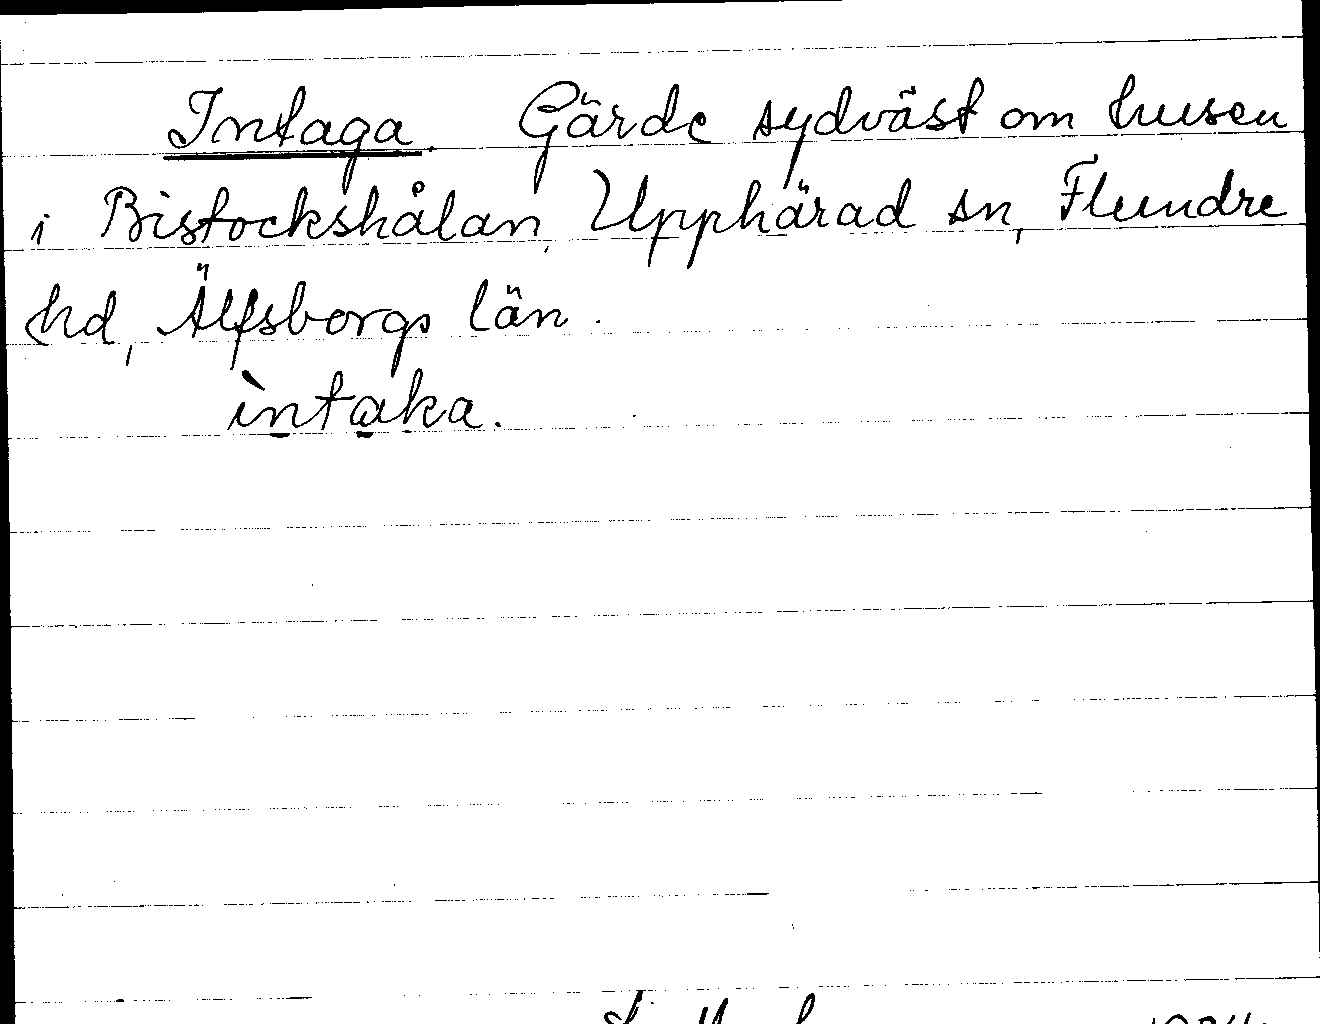 Intaga. Gärde sydväst om husen
i Bistockshålan, Upphärad sn, Flundre
hd, Älfsborgs län.
ìntaka.